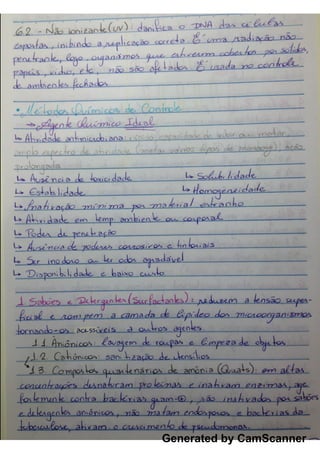 6.2 - Não ionizante (UV): danifica o DNA das células
expostas, inibindo a replicação correta. É uma radiação não
penetrante, logo, organismos que estiverem cobertos por sólidos,
papéis, vidro, etc, não são afetados. É usada no controle
de ambientes fechados.
• Métodos Químicos de Controle
→ Agente Químico Ideal
↳ Atividade antimicrobiana: capacidade de inibir ou matar,
amplo espectro de atividade (matar vários tipos de ), ação
prolongada
↳ Ausência de toxicidade ↳ Solubilidade
↳ Estabilidade ↳ Homogeneidade
↳ Inativação mínima por material estranho
↳ Atividade em temp. ambiente ou corporal
↳ Poder de penetração
↳ Ausência de poderes corrosivos e tintoriais
↳ Ser inodoro ou ter odor agradável
↳ Disponibilidade e baixo custo
1. Sabões e Detergentes (Surfactantes): reduzem a tensão super-
ficial e rompem a camada de lipídeo dos microorganismos
tornando-os acessíveis a outros agentes.
1.1 Aniônicos: lavagem de roupas e limpeza de objetos
1.2 Catiônicos: sanitização de utensílios
1.3 Compostos quaternários de amônia (Quats): em altas
concentrações desnaturam proteínas e inativam enzimas, age
fortemente contra bactérias gram +, são inativados por sabões
e detergentes aniônicos, não matam endosporos e bactérias da
tuberculose, ativam o crescimento de pseudomonas.
Generated by CamScanner